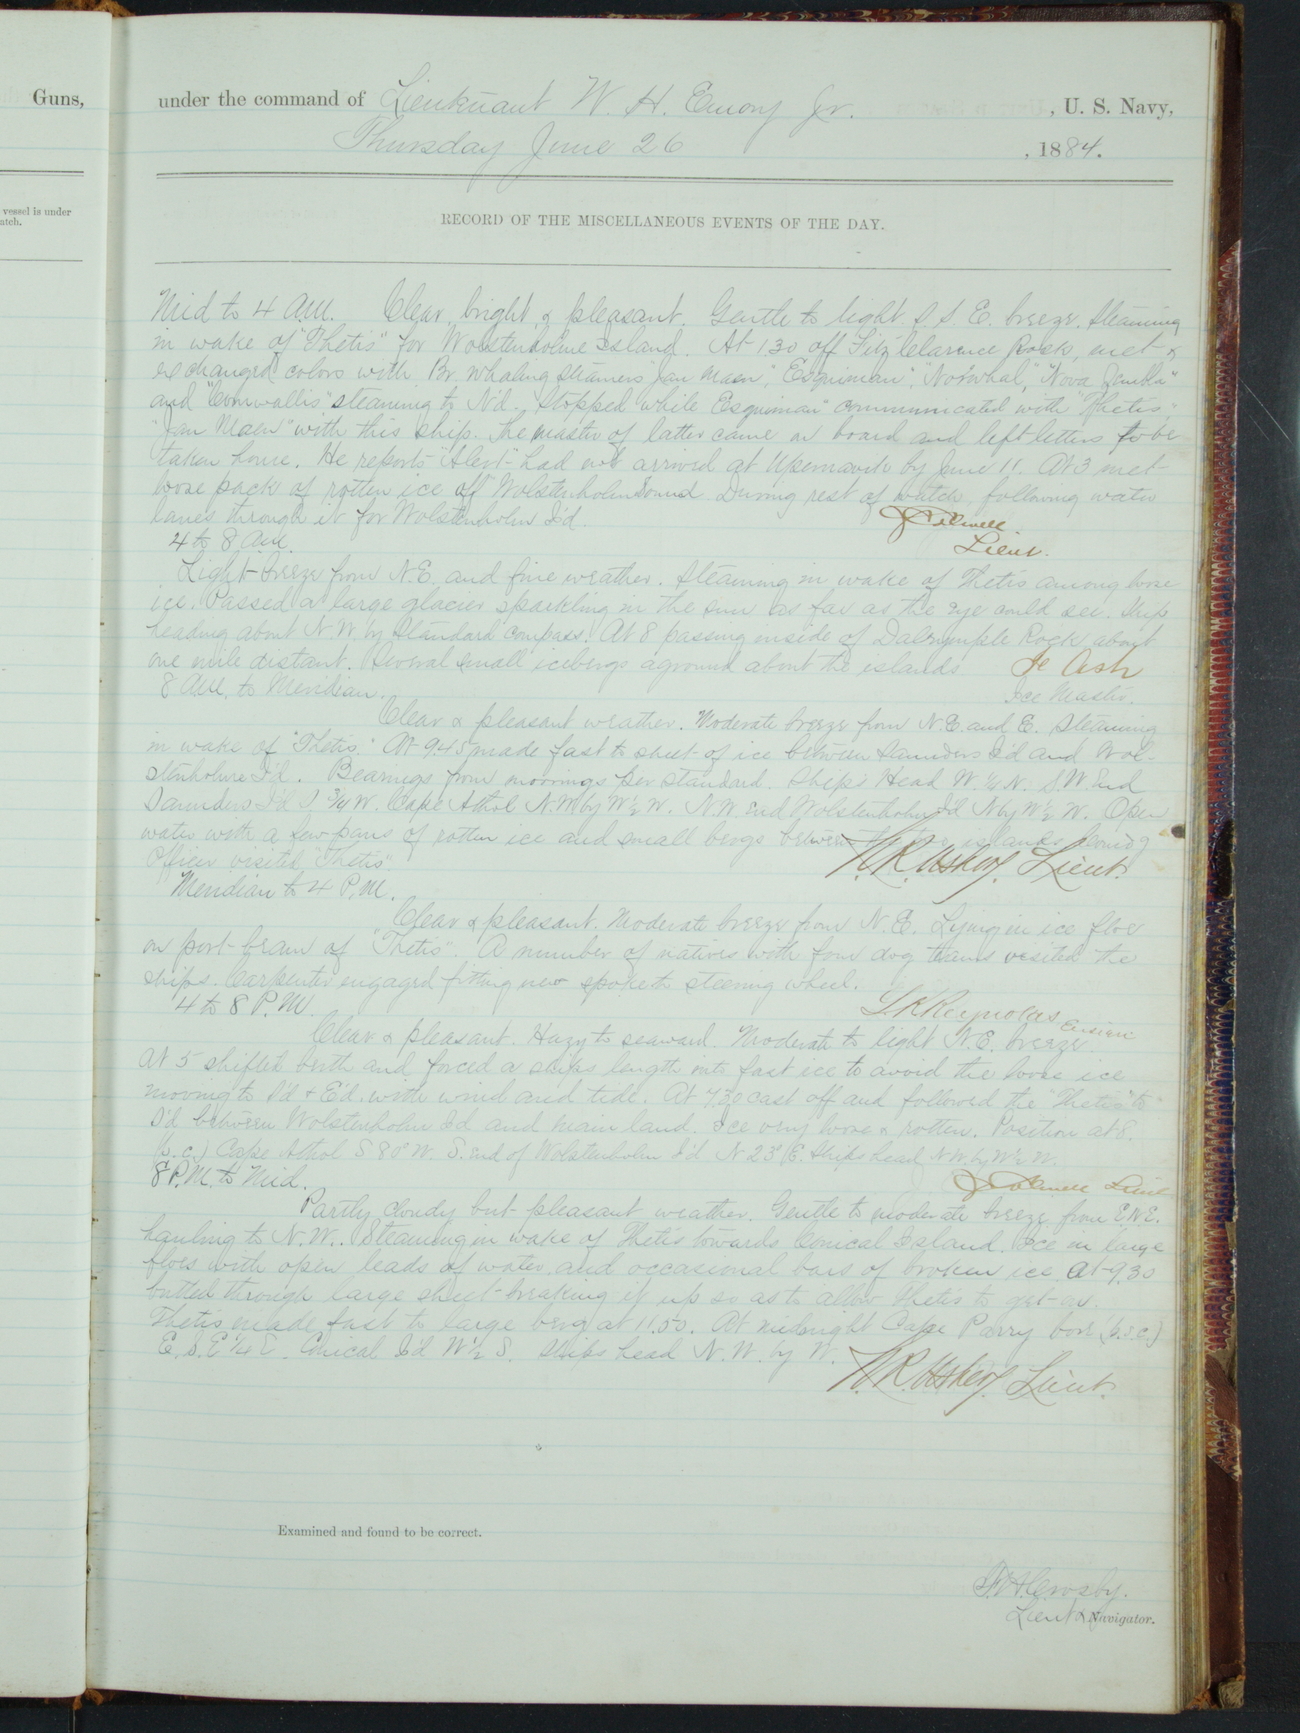 Guns,
under the command of Lieutenant W. H. Emory Jr. , U. S. Navy,
Thursday June 26 , 1884.
vessel is under
atch.
RECORD OF THE MISCELLANEOUS EVENTS OF THE DAY.
Mid to 4 A.M. Clear, bright, & pleasant. Gentle to light S. S. E. breeze. Steaming
in wake of "Thetis" for Wolstenholme Island. At 1 30 off Fitz Clarence Rock, met &
exchanged colors with Br. whaling steamers "Jan Maen", "Esquimau", "Narwhal," "Nova Zembla"
and "Cornwallis" steaming to N'd. Stopped while "Esquimau" communicated with "Thetis",
"Jan Maen" with this ship. The master of latter came on board and left letters to be
taken home. He reports "Alert" had not arrived at Upernavik by June 11. At 3 met
loose pack of rotten ice off Wolstenholm Sound. During rest of watch, following water
lanes through it for Wolstenholm I'd.
J C Colwell
Lieut.
4 to 8 A.M.
Light breeze from N.E. and fine weather. Steaming in wake of Thetis among loose
ice. Passed a large glacier sparkling in the sun as far as the eye could see. Ship
heading about N.W. by Standard Compass. At 8 passing inside of Dalrymple Rock about
one mile distant. Several small icebergs aground about the islands Jc Ash
Ice Master.
8 A.M. to Meridian.
Clear & pleasant weather. Moderate breeze from N.E. and E. Steaming
in wake of "Thetis." At 9.45 made fast to sheet of ice between Saunders I'd and Wol-
stenholme I'd. Bearings from moorings per standard. Ship's Head W. 1/4 N. S.W. End
Saunders I'd S 3/4 W. Cape Athol N.W. by W 1/2 W. N.W. end Wolstenholm I'd N by W 1/2 W. Open
water with a few pans of rotten ice and small bergs between the two islands. Comd'g
Officer visited "Thetis".
N. R. Usher, Lieut.
Meridian to 4 P.M.
Clear & pleasant. Moderate breeze from N. E. Lying in ice floe
on port beam of "Thetis". A number of natives with four dog teams visited the
ships. Carpenter engaged fitting new spoke to steering wheel.
L K Reynolds
Ensign
4 to 8 P.M.
Clear & pleasant. Hazy to seaward. Moderate to light N.E. breeze.
At 5 shifted berth and forced a ships length into fast ice to avoid the loose ice
moving to S'd & E'd. with wind and tide. At 7.30 cast off and followed the "Thetis" to
S'd between Wolstenholm I'd and main land. Ice very loose & rotten. Position at 8.
(p. c.) Cape Athol S 80° W. S. end of Wolstenholm I'd N 23° E. Ships head N W by W 1/2 W.
J C Colwell Lieut
8 P.M. to Mid.
Partly cloudy but pleasant weather. Gentle to moderate breeze from E.N.E.
hauling to N.W. Steaming in wake of Thetis towards Conical Island. Ice in large
floes with open leads of water and occasional bars of broken ice. At 9.30
butted through large sheet breaking it up so as to allow Thetis to get on.
Thetis made fast to large berg at 11.50. At midnight Cape Parry bore (p.s.c.)
E. S. E 1/4 E. Conical I'd W 1/2 S. Ships head N. W. by W.
N. R. Usher, Lieut.
Examined and found to be correct.
Lieut & Navigator.